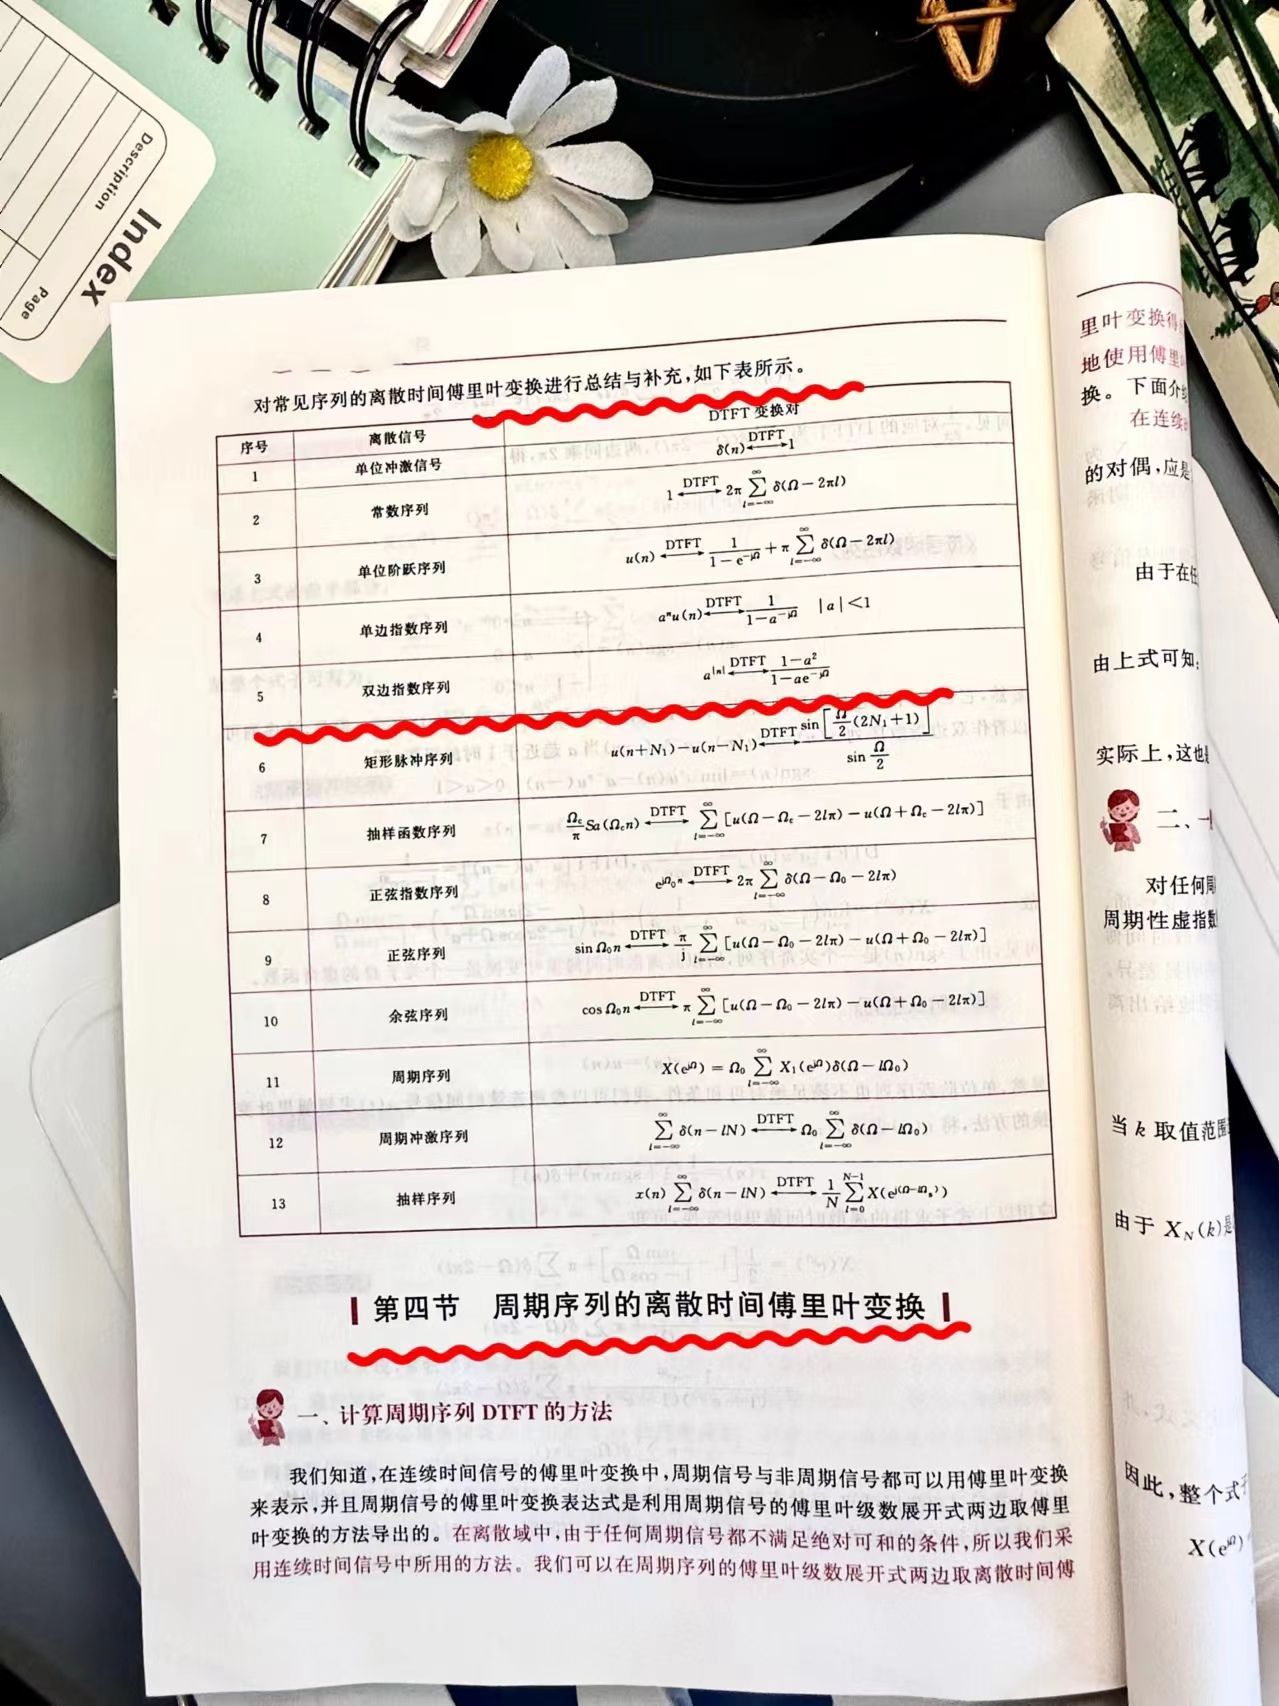 Description
Index
Page
对常见序列的离散时间傅里叶变换进行总结与补充,如下表所示。
序号 离散信号 DTFT 变换对
1 单位冲激信号 δ(n)⟷DTFT 1
2 常数序列 1⟷DTFT 2π∑_{l=-∞}^{∞} δ(Ω-2πl)
3 单位阶跃序列 u(n)⟷DTFT 1/(1-e^{-jΩ})+π∑_{l=-∞}^{∞} δ(Ω-2πl)
4 单边指数序列 aⁿu(n)⟷DTFT 1/(1-a^{-jΩ}) |a|<1
5 双边指数序列 a^{|n|}⟷DTFT (1-a²)/(1-ae^{-jΩ})
6 矩形脉冲序列 u(n+N₁)-u(n-N₁)⟷DTFT sin[Ω/2(2N₁+1)]/sin(Ω/2)
7 抽样函数序列 Ω_c/π Sa(Ω_c n)⟷DTFT ∑_{l=-∞}^{∞}[u(Ω-Ω_c-2lπ)-u(Ω+Ω_c-2lπ)]
8 正弦指数序列 e^{jΩ₀n}⟷DTFT 2π∑_{l=-∞}^{∞} δ(Ω-Ω₀-2lπ)
9 正弦序列 sin Ω₀n⟷DTFT π/j ∑_{l=-∞}^{∞}[u(Ω-Ω₀-2lπ)-u(Ω+Ω₀-2lπ)]
10 余弦序列 cos Ω₀n⟷DTFT π∑_{l=-∞}^{∞}[u(Ω-Ω₀-2lπ)-u(Ω+Ω₀-2lπ)]
11 周期序列 X(e^{jΩ})=Ω₀∑_{l=-∞}^{∞} X₁(e^{jΩ})δ(Ω-lΩ₀)
12 周期冲激序列 ∑_{l=-∞}^{∞} δ(n-lN)⟷DTFT Ω₀∑_{l=-∞}^{∞} δ(Ω-lΩ₀)
13 抽样序列 x(n)∑_{l=-∞}^{∞} δ(n-lN)⟷DTFT 1/N ∑_{l=0}^{N-1} X(e^{j(Ω-lΩ_s)})
第四节 周期序列的离散时间傅里叶变换
一、计算周期序列 DTFT 的方法
我们知道,在连续时间信号的傅里叶变换中,周期信号与非周期信号都可以用傅里叶变换
来表示,并且周期信号的傅里叶变换表达式是利用周期信号的傅里叶级数展开式两边取傅里
叶变换的方法导出的。在离散域中,由于任何周期信号都不满足绝对可和的条件,所以我们采
用连续时间信号中所用的方法。我们可以在周期序列的傅里叶级数展开式两边取离散时间傅
里叶变换得
地使用傅里
换。下面介
在连续
的对偶,应是
由于在
由上式可知:
实际上,这也
二、
对任何
周期性虚指数
当 k 取值范围
由于 X_N(k)是
因此,整个式
X(e^{jΩ})